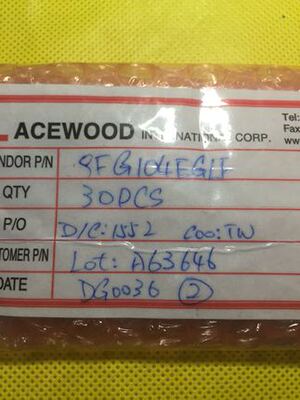 ACEWOOD INTERNATIONAL CORP.
Tel:
Fa
www
NDOR P/N SFG104EG1F
QTY 30PCS
P/O D/C:1552 COO:TW
TOMER P/N Lot: A63646
DATE DG0036 2